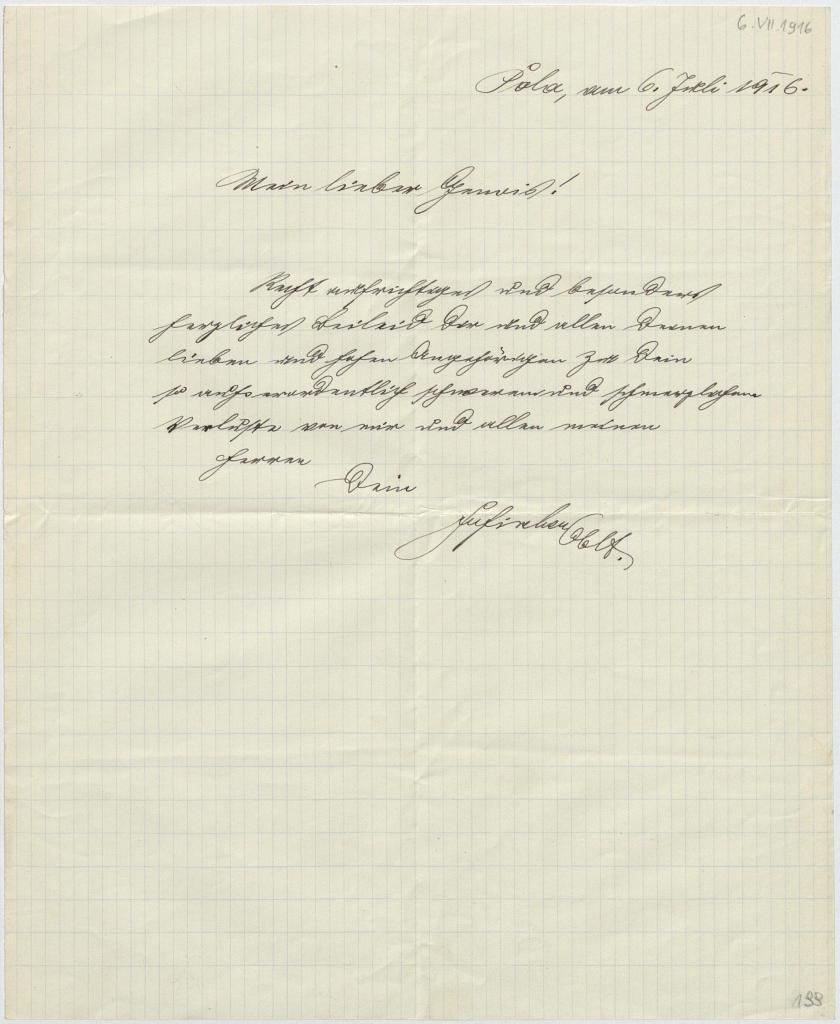 6. VII. 1916
Pola, am 6. Juli 1916.
Mein lieber
Recht aufrichtiges und besonders
herzliches Beileid Dir und allen Deinen
lieben und hohen Angehörigen zu Dein
so außerordentlich schweren und schmerzlichen
Verluste von mir und allen meinen
Herren
Dein
Oblt.
199